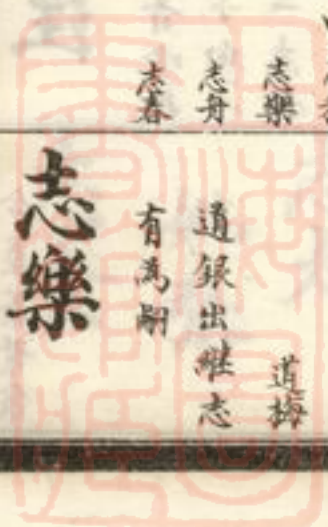 志樂
志舟
志春
道梅
道銀出繼志
有爲嗣
志樂